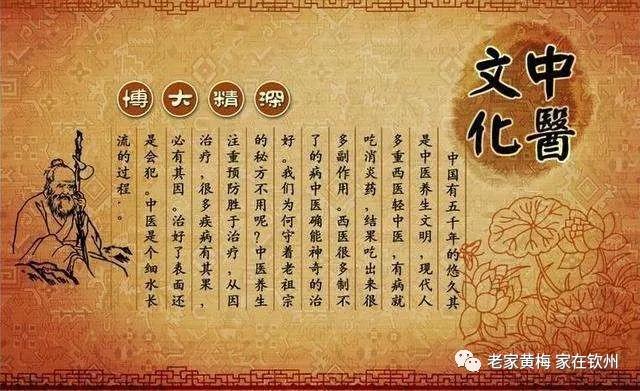 中醫
文化
博大精深
中国有五千年的悠久其
是中医养生文明，现代人
多重西医轻中医，有病就
吃消炎药，结果吃出来很
多副作用。西医很多制不
了的病中医确能神奇的治
好。我们为何守着老祖宗
的秘方不用呢？中医养生
注重预防胜于治疗，从因
治疗，很多疾病有其果，
必有其因。治好了表面还
是会犯。中医是个细水长
流的过程·。
老家黄梅 家在钦州